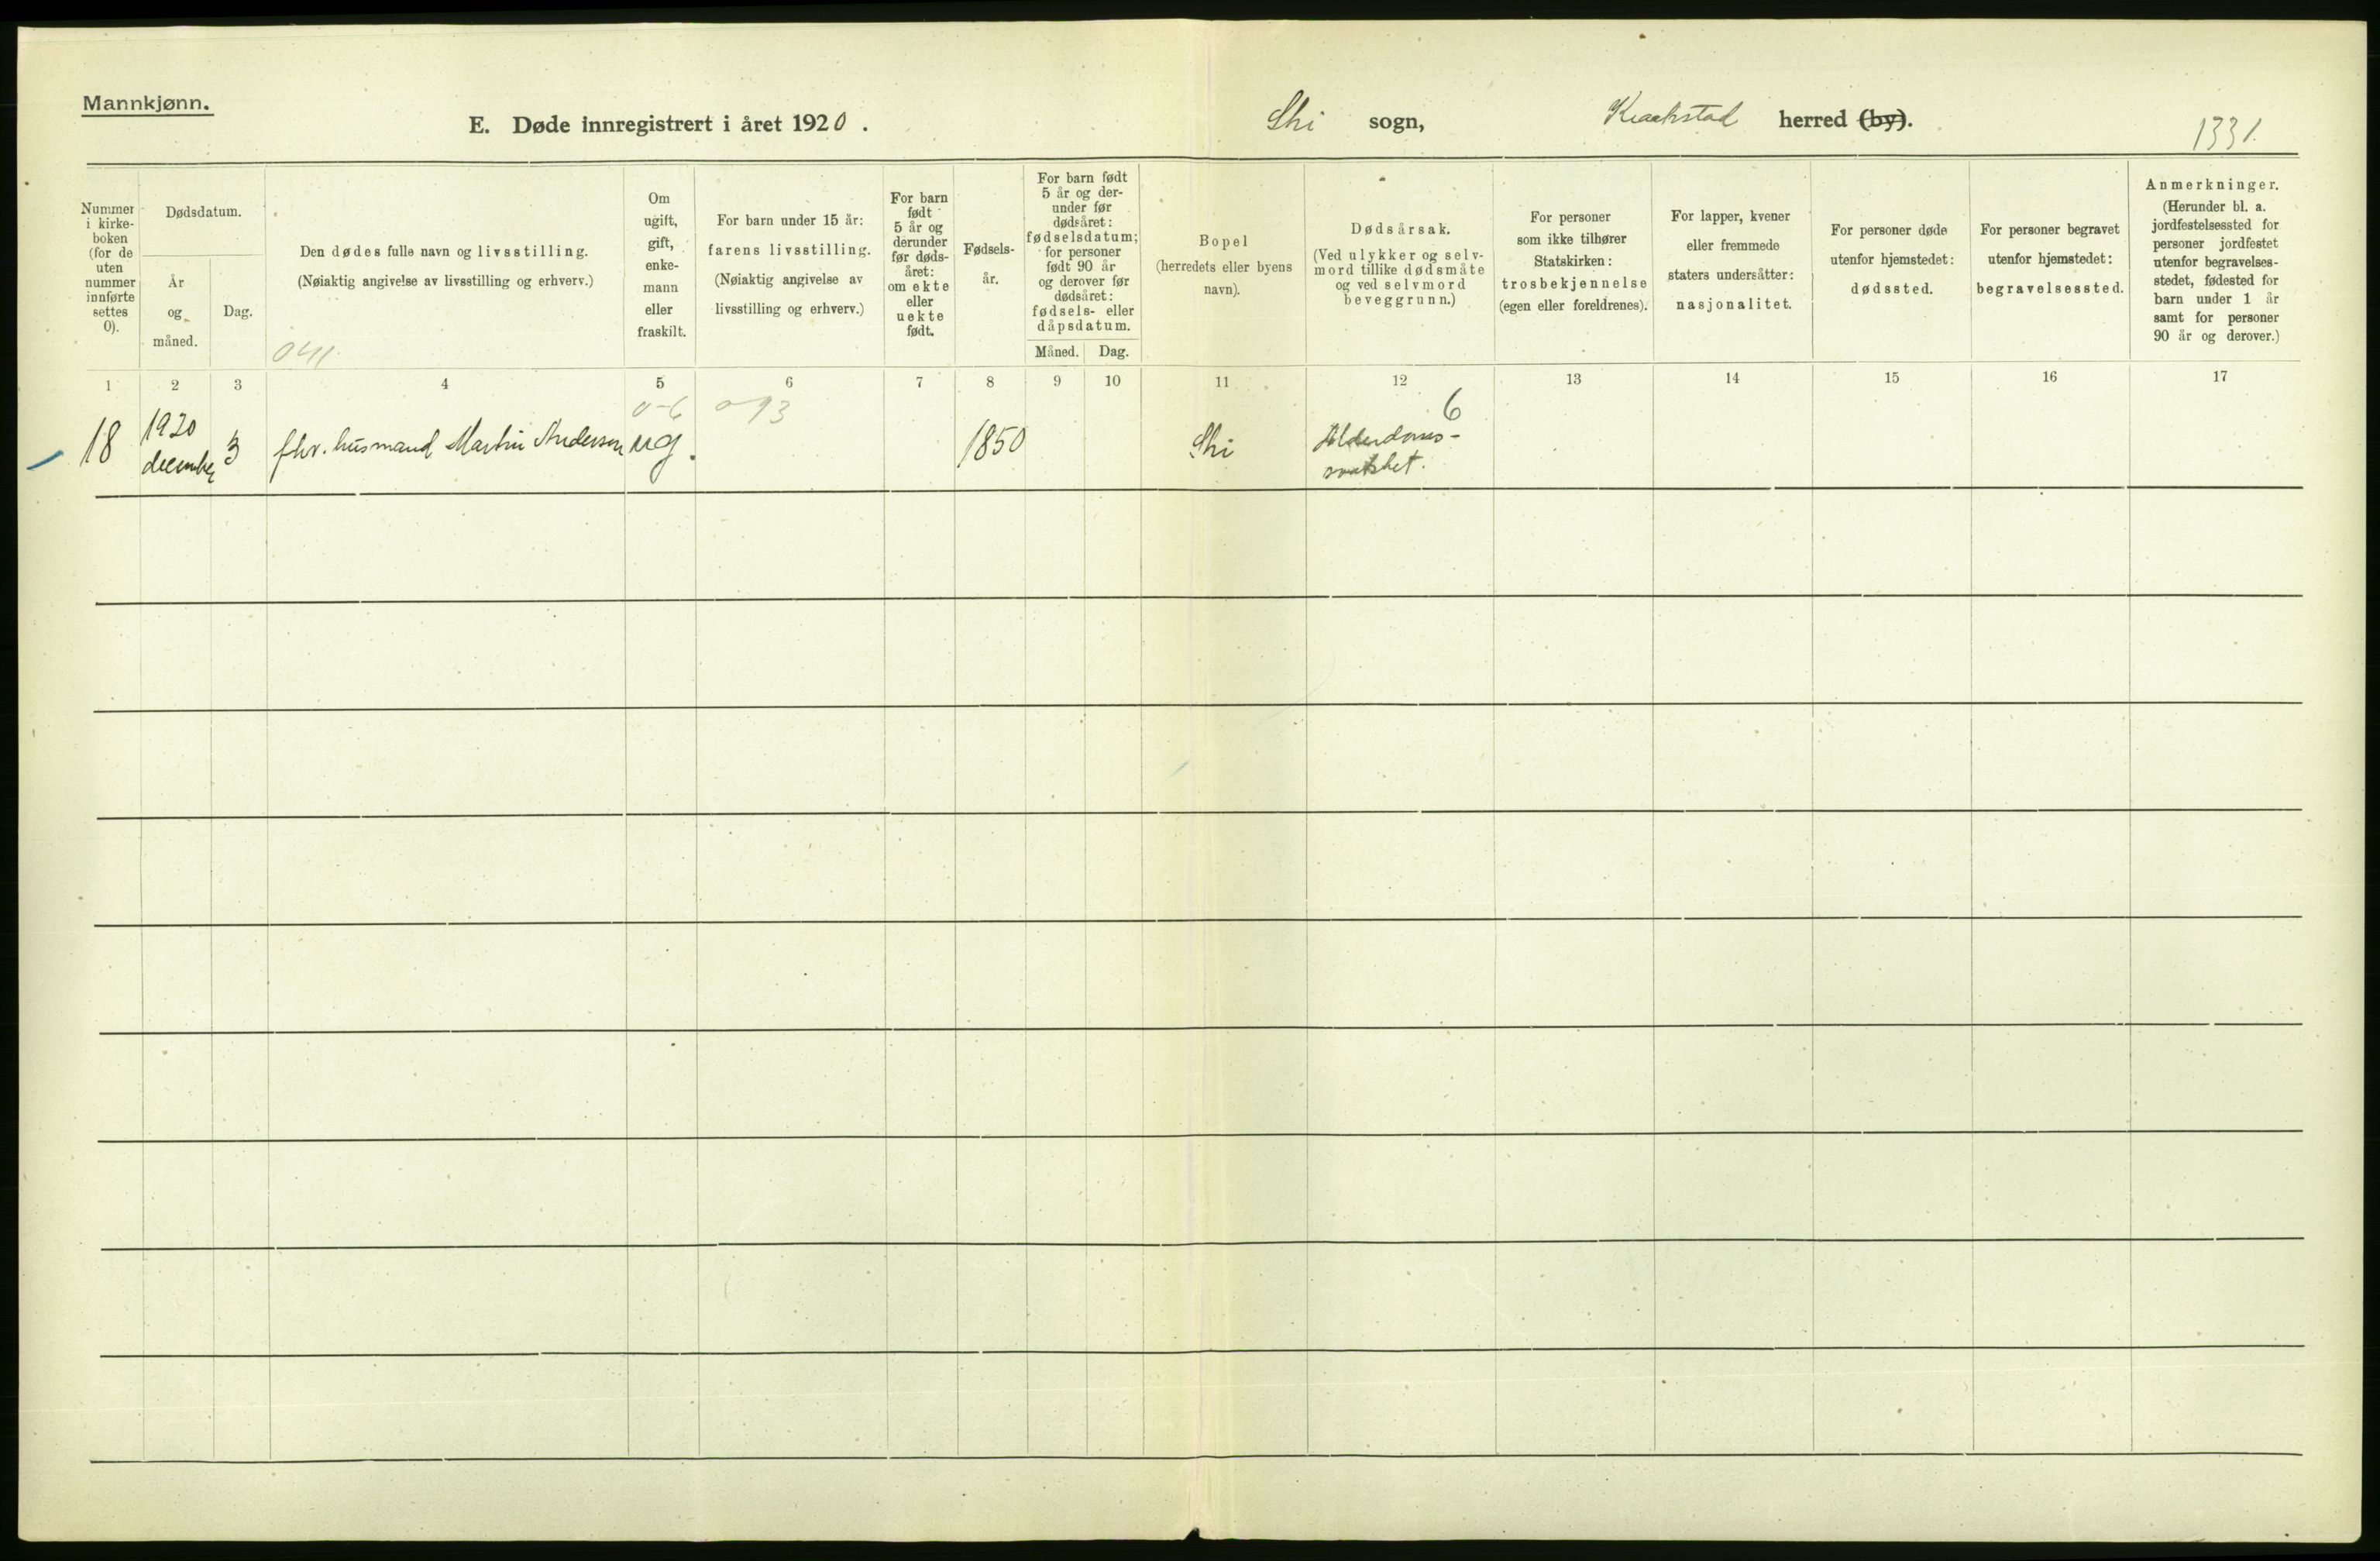 Mannkjønn.
E. Døde innregistrert i året 1920.
Ski sogn,
Kraakstad herred (by).
1331.
Nummer
i kirke-
boken
(for de
uten
nummer
innførte
settes
0).
Dødsdatum.
År
og
måned.
Dag.
Den dødes fulle navn og livsstilling.
(Nøiaktig angivelse av livsstilling og erhverv.)
041.
Om
ugift,
gift,
enke-
mann
eller
fraskilt.
For barn under 15 år:
farens livsstilling.
(Nøiaktig angivelse av
livsstilling og erhverv.)
For barn
født
5 år og
derunder
før døds-
året:
om ekte
eller
uekte
født.
Fødsels-
år.
For barn født
5 år og der-
under før
dødsåret:
fødselsdatum;
for personer
født 90 år
og derover før
dødsåret:
fødsels- eller
dåpsdatum.
Måned. Dag.
Bopel
(herredets eller byens
navn).
Dødsårsak.
(Ved ulykker og selv-
mord tillike dødsmåte
og ved selvmord
beveggrunn.)
For personer
som ikke tilhører
Statskirken:
trosbekjennelse
(egen eller foreldrenes).
For lapper, kvener
eller fremmede
staters undersåtter:
nasjonalitet.
For personer døde
utenfor hjemstedet:
dødssted.
For personer begravet
utenfor hjemstedet:
begravelsessted.
Anmerkninger.
(Herunder bl. a.
jordfestelsessted for
personer jordfestet
utenfor begravelses-
stedet, fødested for
barn under 1 år
samt for personer
90 år og derover.)
1 2 3 4 5 6 7 8 9 10 11 12 13 14 15 16 17
0-6 0-93
6
18 1920 december 3 fhv. husmand Martin Andersen ug. 1850 Ski Alderdoms-
svakhet.